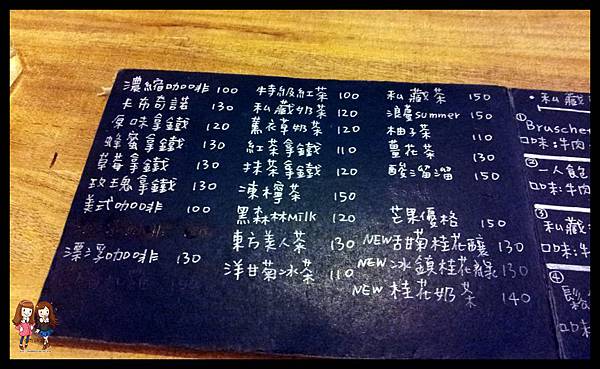 濃縮咖啡 100
卡布奇諾 130
原味拿鐵 120
蜂蜜拿鐵 130
草莓拿鐵 130
玫瑰拿鐵 130
美式咖啡 100
漂浮咖啡 130
特級紅茶 100
私藏奶茶 120
薰衣草奶茶 120
紅茶拿鐵 110
抹茶拿鐵 120
凍檸茶 150
黑森林milk 120
東方美人茶 130
洋甘菊冰茶 110
私藏茶 150
浪漫summer 150
柚子茶 110
薑花茶 130
酸溜溜 150
芒果優格 150
NEW 甜菊桂花釀 130
NEW 冰鎮桂花綠 130
NEW 桂花奶茶 140
• 私藏
①
Brusche
口味:牛肉
②
一人飽
口味:牛肉
③
私藏
口味:牛
④
鬆
口味